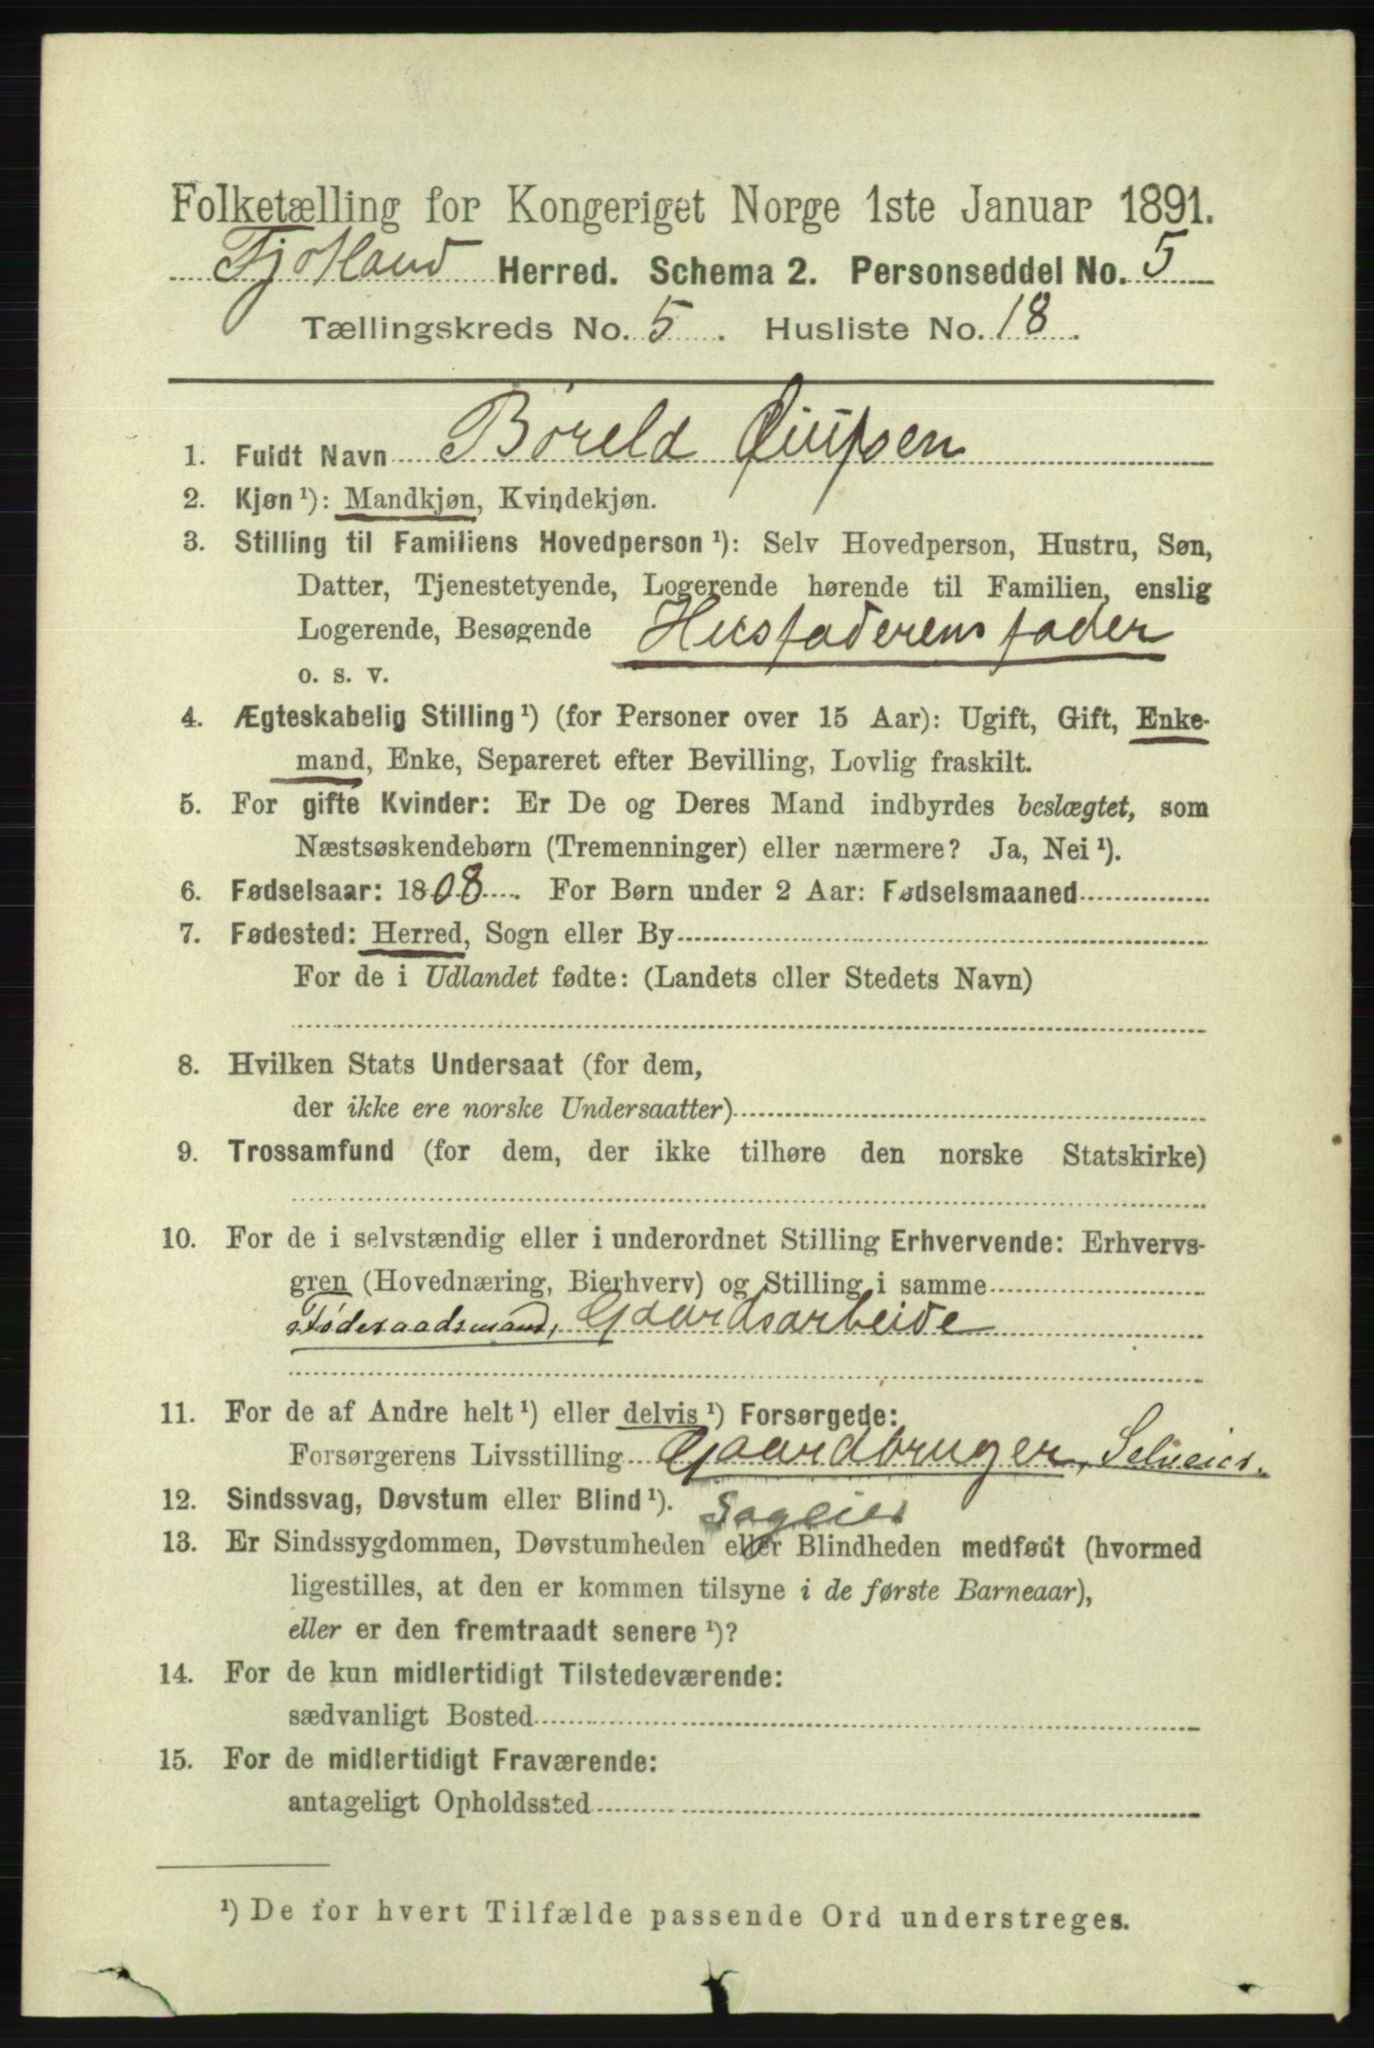 Folketælling for Kongeriget Norge 1ste Januar 1891.
Fjotland Herred. Schema 2. Personseddel No. 5
Tællingskreds No. 5. Husliste No. 18.
1. Fuldt Navn Børeld
2. Kjøn ¹): Mandkjøn, Kvindekjøn.
3. Stilling til Familiens Hovedperson ¹): Selv Hovedperson, Hustru, Søn,
Datter, Tjenestetyende, Logerende hørende til Familien, enslig
Logerende, Besøgende Husfaderens fader
o. s. v.
4. Ægteskabelig Stilling ¹) (for Personer over 15 Aar): Ugift, Gift, Enke-
mand, Enke, Separeret efter Bevilling, Lovlig fraskilt.
5. For gifte Kvinder: Er De og Deres Mand indbyrdes beslægtet, som
Næstsøskendebørn (Tremenninger) eller nærmere? Ja, Nei ¹).
6. Fødselsaar: 1808. For Børn under 2 Aar: Fødselsmaaned
7. Fødested: Herred, Sogn eller By
For de i Udlandet fødte: (Landets eller Stedets Navn)
8. Hvilken Stats Undersaat (for dem,
der ikke ere norske Undersaatter)
9. Trossamfund (for dem, der ikke tilhøre den norske Statskirke)
10. For de i selvstændig eller i underordnet Stilling Erhvervende: Erhvervs-
gren (Hovednæring, Bierhverv) og Stilling i samme
Føderaadsmand, Gaardsarbeide
11. For de af Andre helt ¹) eller delvis ¹) Forsørgede:
Forsørgerens Livsstilling Gaardbruger, Selveier.
12. Sindssvag, Døvstum eller Blind ¹). Sageier
13. Er Sindssygdommen, Døvstumheden eller Blindheden medfødt (hvormed
ligestilles, at den er kommen tilsyne i de første Barneaar),
eller er den fremtraadt senere ¹)?
14. For de kun midlertidigt Tilstedeværende:
sædvanligt Bosted
15. For de midlertidigt Fraværende:
antageligt Opholdssted
¹) De for hvert Tilfælde passende Ord understreges.